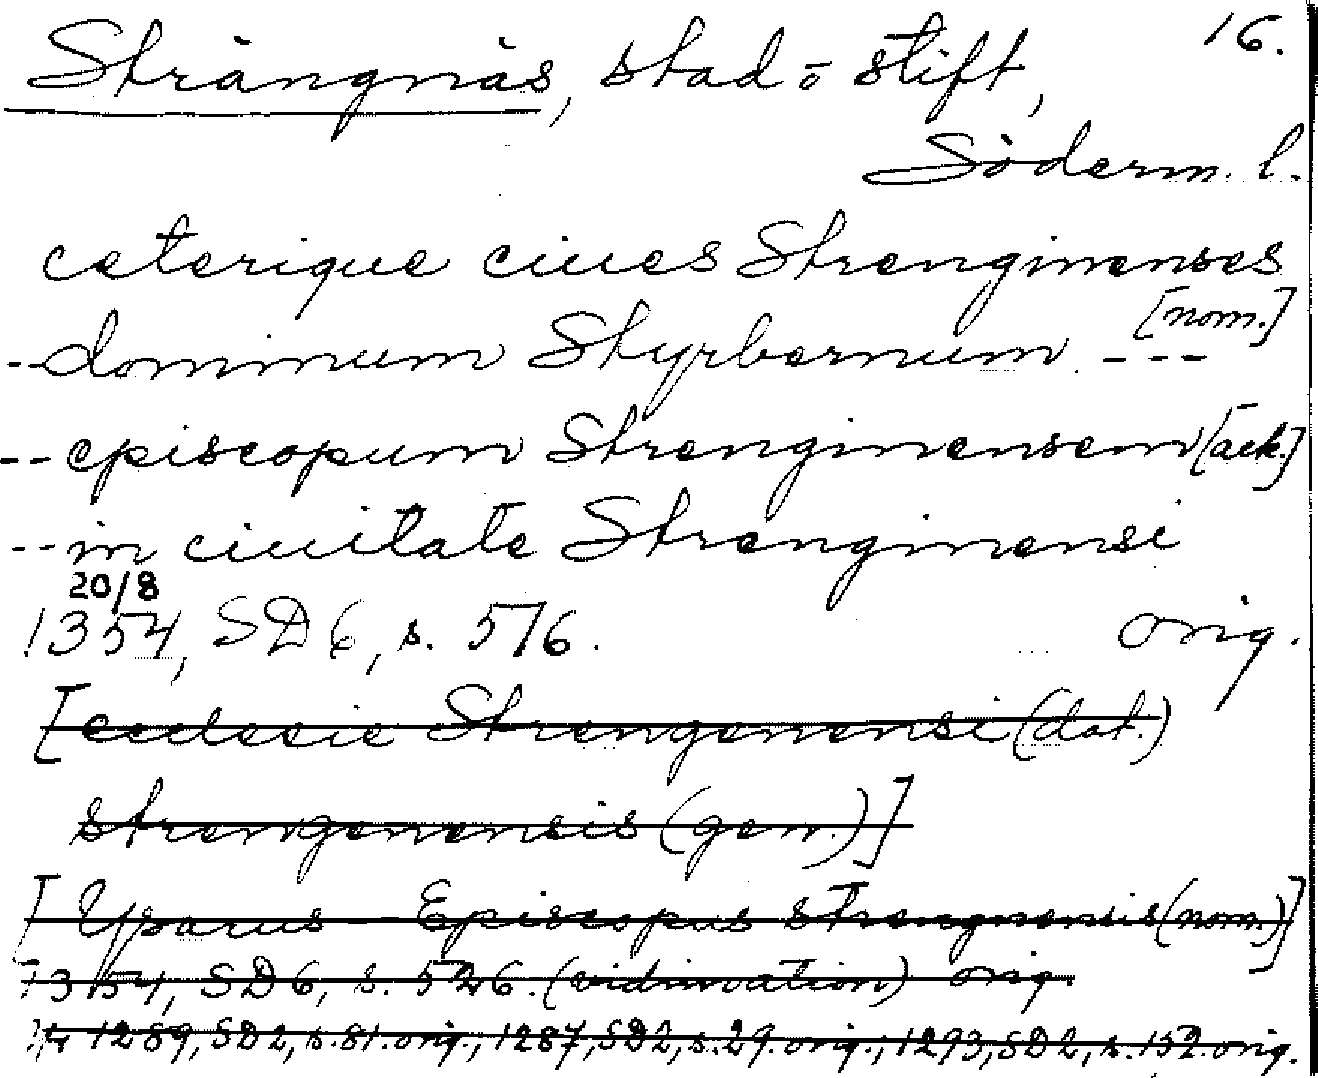 16.
Strängnäs, stad o stift,
Söderm. l.
ceterique ciues Strenginenses
[nom.]
-- dominum Styrbernum ---
-- episcopum Strenginensem [ack.]
-- in ciuitate Strenginensi
20/8
1354, SD 6, s. 576. orig.
[ecclesie Strengenensi (dat.)
strengenensis (gen.)]
[Yparus - Episcopus strengnensis (nom.)]
1354, SD 6, s. 526. (vidimation) orig.
1289, SD 2, s. 81. orig., 1287, SD 2, s. 29. orig.; 1293, SD 2, s. 152. orig.